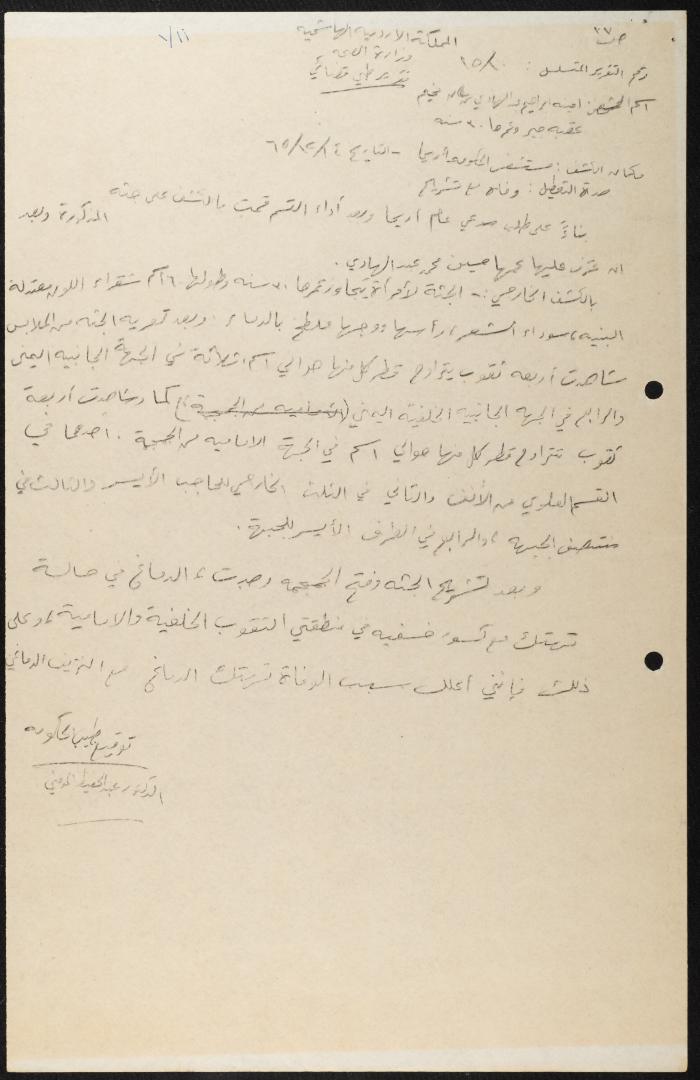 ص ٢٧
٧/١١
المملكة الأردنية الهاشمية
وزارة الصحة
تقرير طبي قضائي
رقم التقرير المتسلسل : ١٥/٠
اسم : امينه ابراهيم عبد الهادي مخيم
عقبة جبر وعمرها ٣٠ سنه
مكان الكشف : مستشفى الحكومه أريحا - التاريخ ١٤/١٢/٦٥
مدة التعطيل : وفاه مع تشريح
بناءً على طلب مدعي عام اريحا وبعد أداء القسم قمت بالكشف على جثه المذكورة وبعد
ان تعرف عليها عمها حسين محمد عبد الهادي .
بالكشف الخارجي :- الجثة لأمرأة يتجاوز عمرها ٣٠ سنه وطولها ١٦٠سم شقراء اللون معتدلة
البنيه ، سوداء الشعر ، رأسها ووجهها ملطخ بالدماء . وبعد تعريه الجثه من الملابس
شاهدت أربعه ثقوب يتراوح قطر كل منها حوالي ١سم ثلاثة في الجهة الجانبيه اليمنى
والرابع في الجهه الجانبيه الخلفيه اليمنى (الاماميه من الجبهة) كما وشاهدت أربعة
ثقوب تتراوح قطر كل منها حوالي ١سم في الجهة الاماميه من الجبهة . احدها في
القسم العلوي من الأنف والثاني في الثلث الخارجي للحاجب الأيسر والثالث في
منتصف الجبهه ، والرابع في الطرف الأيسر للجبهة .
وبعد تشريح الجثه وفتح الجمجمه وجدت الدماغ في حالة
تهتك مع كسور خسفيه في منطقتي الثقوب الخلفية والامامية ، وعلى
ذلك فإنني أعلل سبب الوفاة تهتك الدماغ مع النزيف الدماغي
توقيع طبيب الحكومه
الدكتور عبد الحفيظ